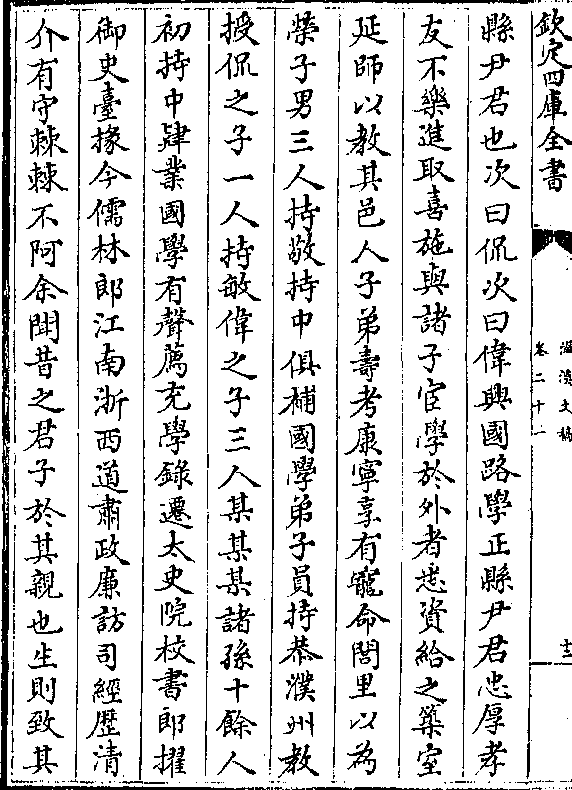 欽定四庫全書
滋溪文稿
卷二十一
十三
縣尹君也次曰侃次曰偉興國路學正縣尹君忠厚孝
友不樂進取喜施與諸子宦學於外者悉資給之築室
延師以教其邑人子弟壽考康寧享有寵命閭里以為
榮子男三人持敬持中俱補國學弟子員持恭濮州教
授侃之子一人持敏偉之子三人某某某諸孫十餘人
初持中肄業國學有聲薦充學錄遷太史院校書郎擢
御史臺掾今儒林郎江南浙西道肅政廉訪司經歷清
介有守棘棘不阿余聞昔之君子於其親也生則致其